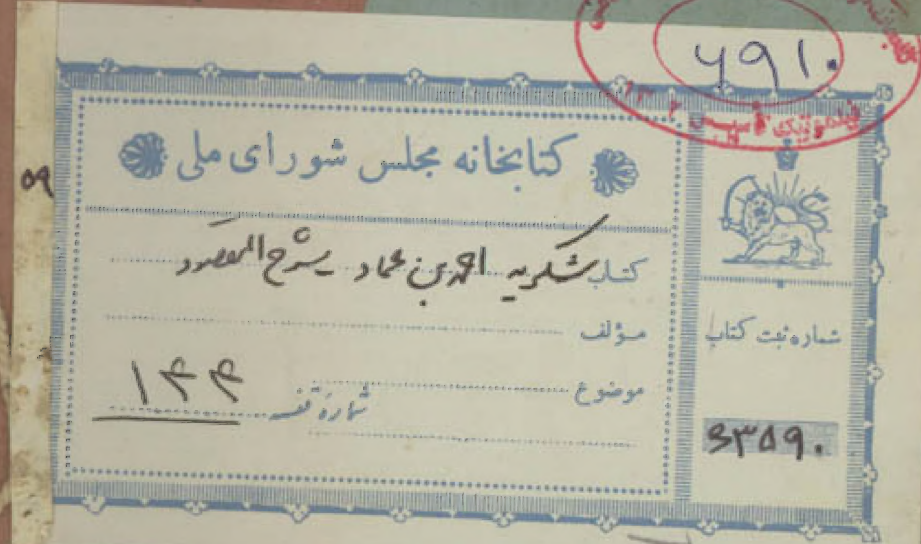 ۶۹۱۰
کتابخانه مجلس شورای ملی
کتاب شکریه احمد بن عماد بشرح المقصود
مؤلف
موضوع
شماره قفسه ۱۴۴
شماره ثبت کتاب
۶۳۵۹۰
۵۹